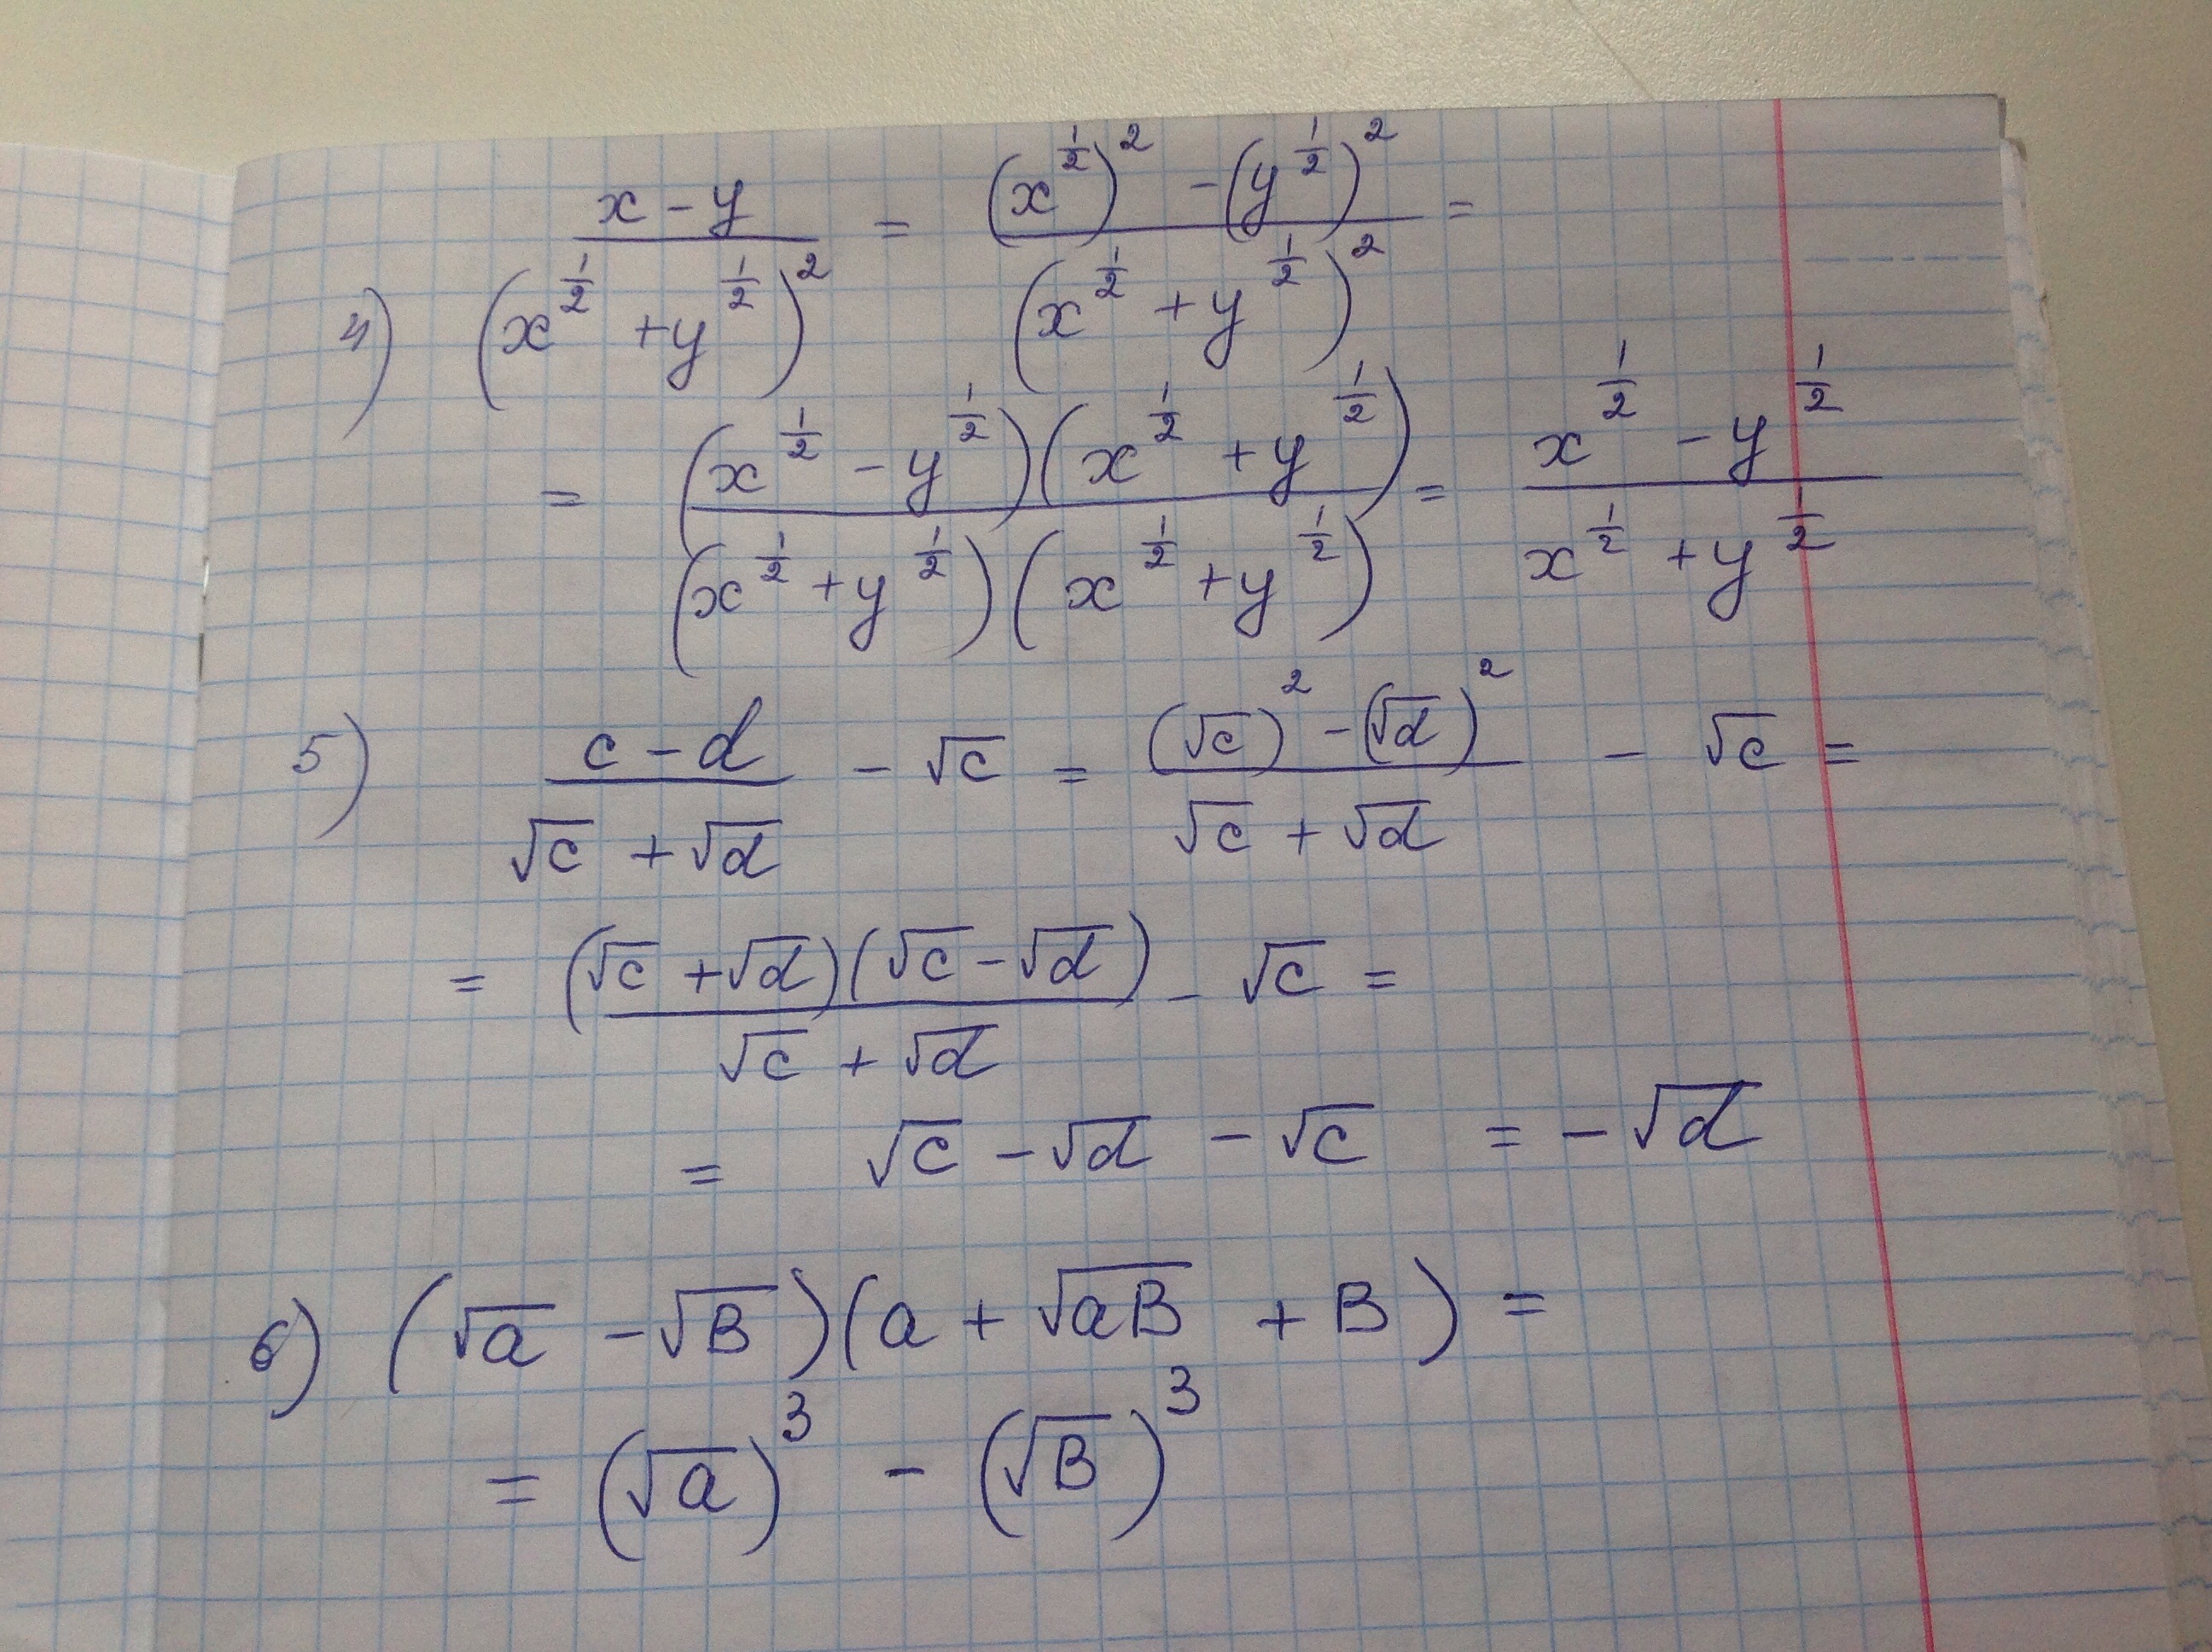 4) \frac{x-y}{(x^{\frac{1}{2}}+y^{\frac{1}{2}})^2} = \frac{(x^{\frac{1}{2}})^2-(y^{\frac{1}{2}})^2}{(x^{\frac{1}{2}}+y^{\frac{1}{2}})^2} =
= \frac{(x^{\frac{1}{2}}-y^{\frac{1}{2}})(x^{\frac{1}{2}}+y^{\frac{1}{2}})}{(x^{\frac{1}{2}}+y^{\frac{1}{2}})(x^{\frac{1}{2}}+y^{\frac{1}{2}})} = \frac{x^{\frac{1}{2}}-y^{\frac{1}{2}}}{x^{\frac{1}{2}}+y^{\frac{1}{2}}}
5) \frac{c-d}{\sqrt{c}+\sqrt{d}} - \sqrt{c} = \frac{(\sqrt{c})^2-(\sqrt{d})^2}{\sqrt{c}+\sqrt{d}} - \sqrt{c} =
= \frac{(\sqrt{c}+\sqrt{d})(\sqrt{c}-\sqrt{d})}{\sqrt{c}+\sqrt{d}} - \sqrt{c} =
= \sqrt{c}-\sqrt{d}-\sqrt{c} = -\sqrt{d}
6) (\sqrt{a}-\sqrt{B})(a+\sqrt{aB}+B) =
= (\sqrt{a})^3 - (\sqrt{B})^3